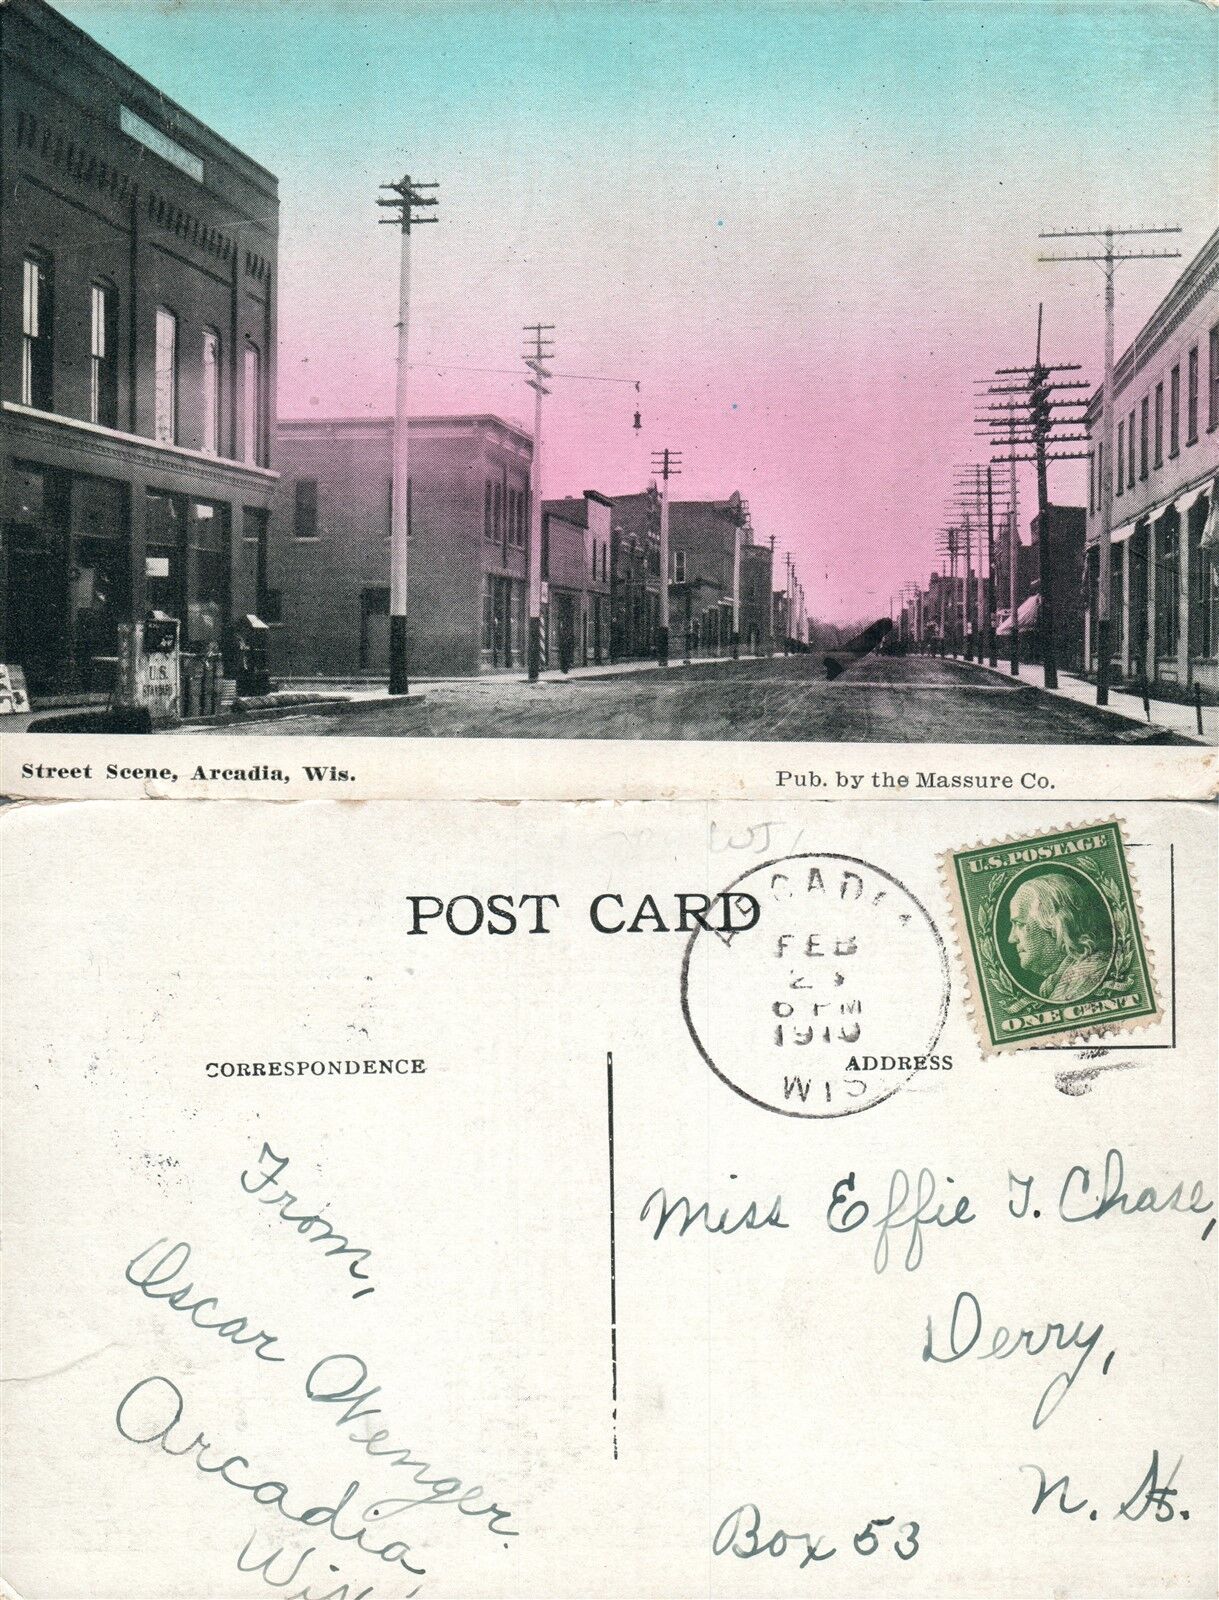 U.S.
STANDARD
Street Scene, Arcadia, Wis.
Pub. by the Massure Co.
POST CARD
ARCADIA
FEB
6 PM
1910
WIS
U.S. POSTAGE
ONE CENT
CORRESPONDENCE
ADDRESS
From,
Oscar Wenger.
Arcadia,
Wis.
Miss Effie T. Chase,
Derry,
N. H.
Box 53